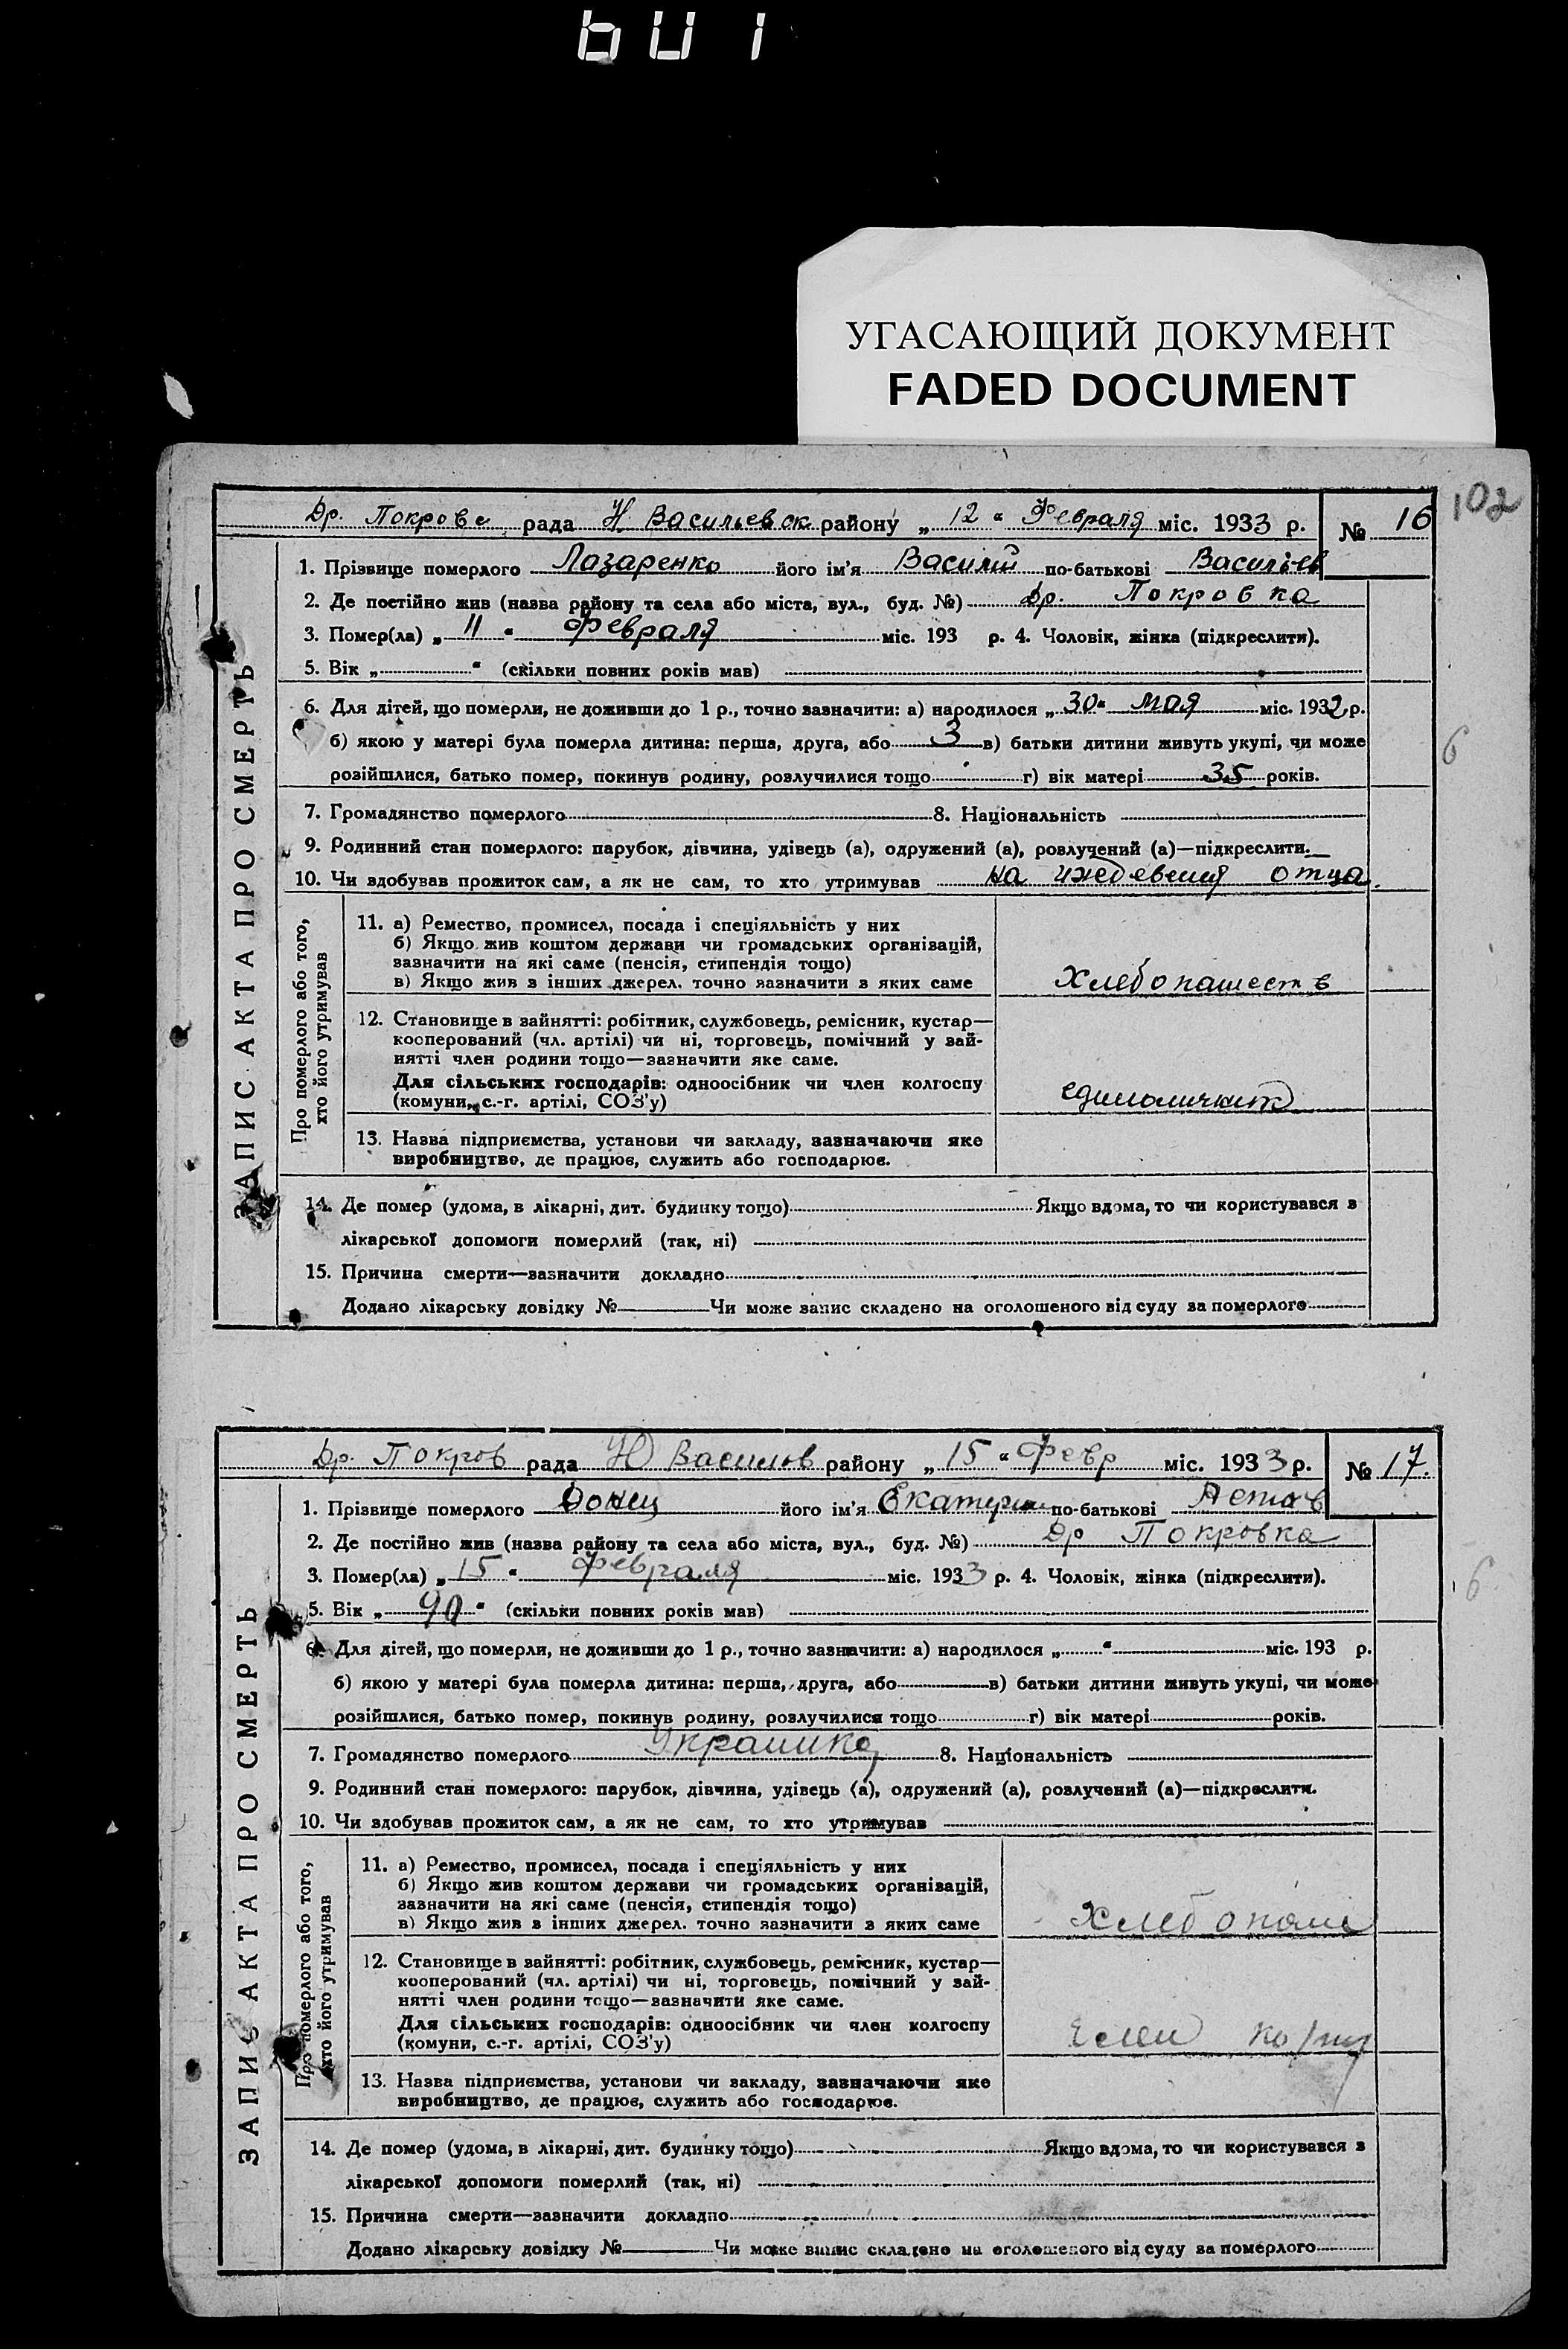 601
УГАСАЮЩИЙ ДОКУМЕНТ
FADED DOCUMENT
102
Др. Покровс рада Н Васильевск району „ 12 “ Февраля міс. 1933 р. № 16
1. Прізвище померлого Лазаренко його ім’я Василий по-батькові Васильев
2. Де постійно жив (назва району та села або міста, вул., буд. №) Др. Покровка
3. Помер(ла) „ 11 “ Февраля міс. 193 р. 4. Чоловік, жінка (підкреслити).
5. Вік „ “ (скільки повних років мав)
6. Для дітей, що померли, не доживши до 1 р., точно зазначити: а) народилося „ 30 “ мая міс. 1932 р.
б) якою у матері була померла дитина: перша, друга, або 3 в) батьки дитини живуть укупі, чи може
6
розійшлися, батько помер, покинув родину, розлучилися тощо г) вік матері 35 років.
7. Громадянство померлого 8. Національність
9. Родинний стан померлого: парубок, дівчина, удівець (а), одружений (а), розлучений (а)—підкреслити.
10. Чи здобував прожиток сам, а як не сам, то хто утримував на ижедевения отца
ЗАПИС АКТА ПРО СМЕРТЬ
Про померлого або того,
хто його утримував
11. а) Ремество, промисел, посада і спеціяльність у них
б) Якщо жив коштом держави чи громадських організацій,
зазначити на які саме (пенсія, стипендія тощо)
в) Якщо жив з інших джерел. точно зазначити з яких саме Хлебопашеств
12. Становище в зайнятті: робітник, службовець, ремісник, кустар—
кооперований (чл. артілі) чи ні, торговець, помічний у зай-
нятті член родини тощо—зазначити яке саме.
Для сільських господарів: одноосібник чи член колгоспу
(комуни, с.-г. артілі, СОЗ’у)
13. Назва підприємства, установи чи закладу, зазначаючи яке
виробництво, де працює, служить або господарює.
14. Де помер (удома, в лікарні, дит. будинку тощо) Якщо вдома, то чи користувався з
лікарської допомоги померлий (так, ні)
15. Причина смерти—зазначити докладно
Додано лікарську довідку № Чи може запис складено на оголошеного від суду за померлого
Др. Покров рада Н Василов району „ 15 “ Февр міс. 1933 р. № 17.
1. Прізвище померлого Донец його ім’я Екатерин по-батькові
2. Де постійно жив (назва району та села або міста, вул., буд. №) Др Покровка
3. Помер(ла) „ 15 “ Февраля міс. 1933 р. 4. Чоловік, жінка (підкреслити).
6
5. Вік „ 90 “ (скільки повних років мав)
6. Для дітей, що померли, не доживши до 1 р., точно зазначити: а) народилося „ “ міс. 193 р.
б) якою у матері була померла дитина: перша, друга, або в) батьки дитини живуть укупі, чи може
розійшлися, батько помер, покинув родину, розлучилися тощо г) вік матері років.
7. Громадянство померлого 8. Національність
9. Родинний стан померлого: парубок, дівчина, удівець (а), одружений (а), розлучений (а)—підкреслити.
10. Чи здобував прожиток сам, а як не сам, то хто утримував
ЗАПИС АКТА ПРО СМЕРТЬ
Про померлого або того,
хто його утримував
11. а) Ремество, промисел, посада і спеціяльність у них
б) Якщо жив коштом держави чи громадських організацій,
зазначити на які саме (пенсія, стипендія тощо)
в) Якщо жив з інших джерел. точно зазначити з яких саме Хлебопаш
12. Становище в зайнятті: робітник, службовець, ремісник, кустар—
кооперований (чл. артілі) чи ні, торговець, помічний у зай-
нятті член родини тощо—зазначити яке саме.
Для сільських господарів: одноосібник чи член колгоспу
(комуни, с.-г. артілі, СОЗ’у)
13. Назва підприємства, установи чи закладу, зазначаючи яке
виробництво, де працює, служить або господарює.
14. Де помер (удома, в лікарні, дит. будинку тощо) Якщо вдома, то чи користувався з
лікарської допомоги померлий (так, ні)
15. Причина смерти—зазначити докладно
Додано лікарську довідку № Чи може запис складено на оголошеного від суду за померлого